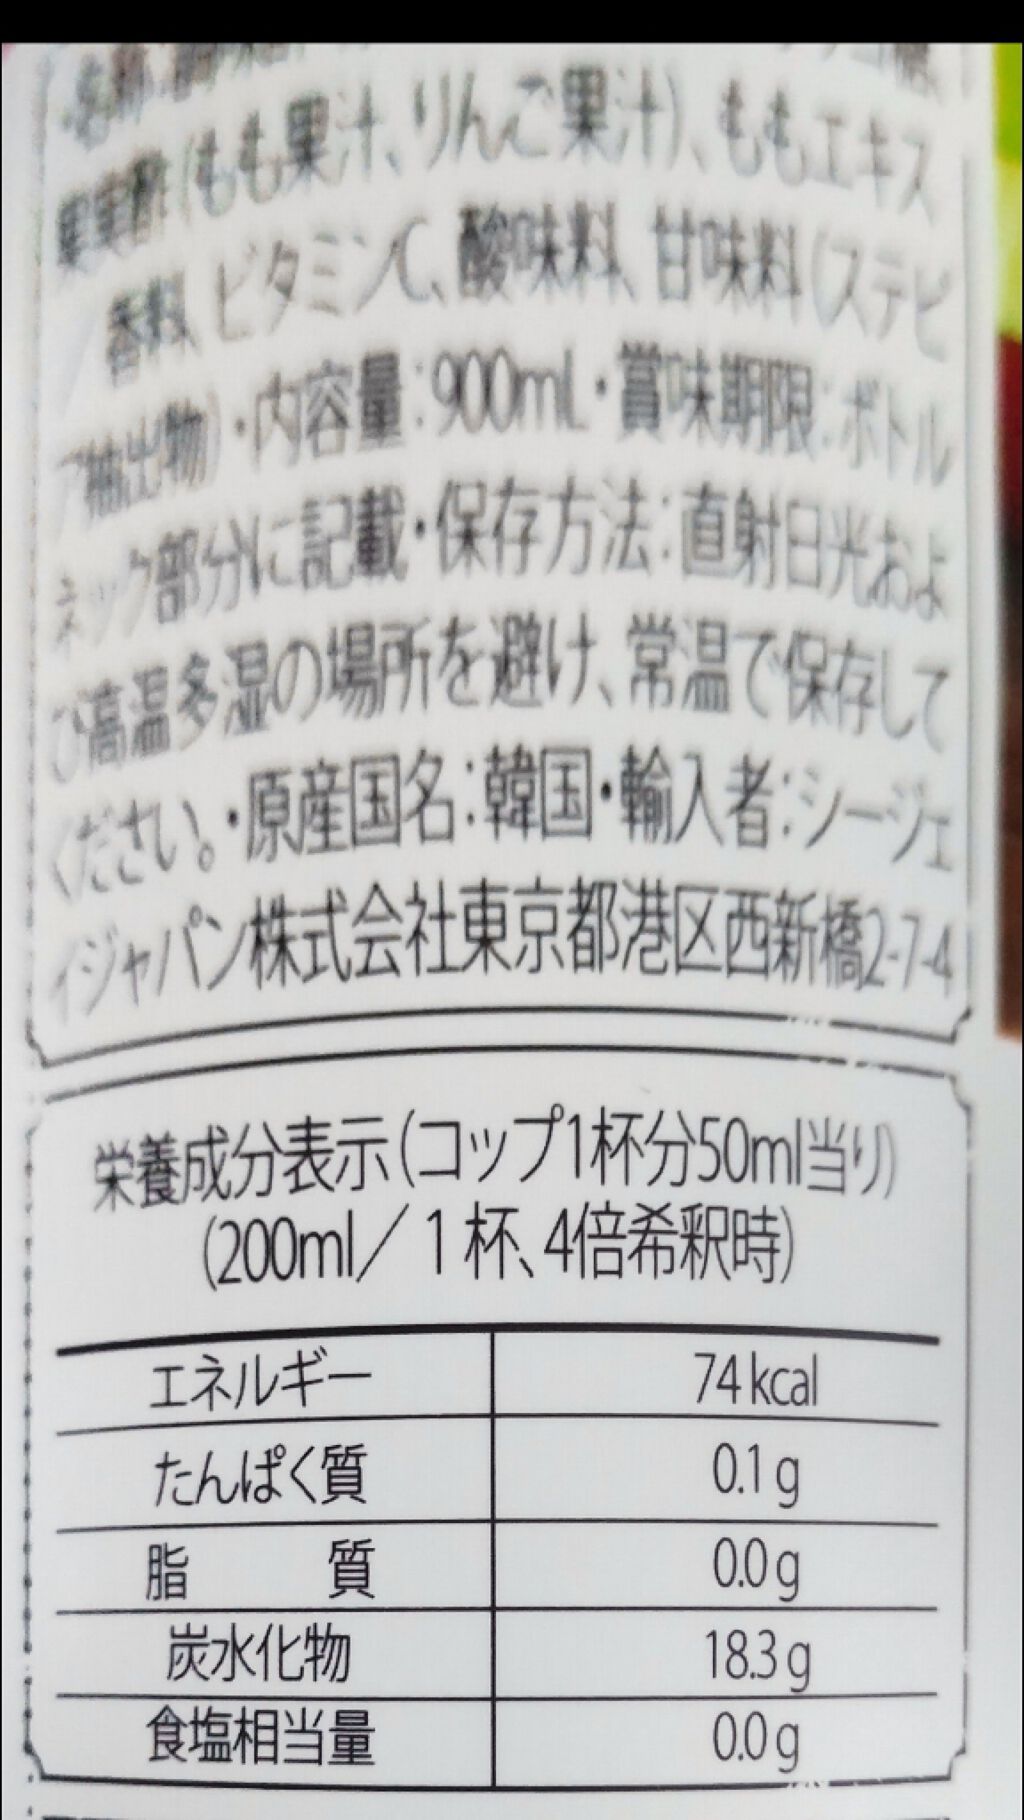 果実酢(もも果汁、りんご果汁)、ももエキス
香料、ビタミンC、酸味料、甘味料(ステビ
ア抽出物)・内容量:900mL・賞味期限:ボトル
ネック部分に記載・保存方法:直射日光およ
び高温多湿の場所を避け、常温で保存して
ください。・原産国名:韓国・輸入者:シージェ
イジャパン株式会社東京都港区西新橋2-7-4
栄養成分表示(コップ1杯分50ml当り)
(200ml/1杯、4倍希釈時)
エネルギー 74 kcal
たんぱく質 0.1 g
脂質 0.0 g
炭水化物 18.3 g
食塩相当量 0.0 g